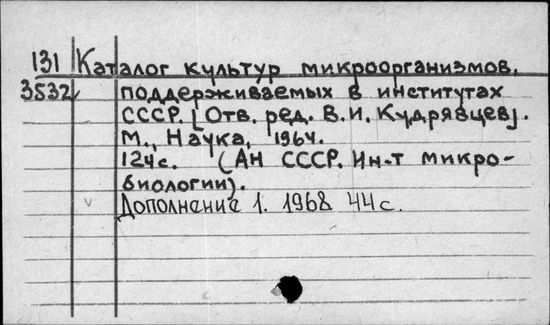 131 Каталог культур микроорганизмов,
3532 поддерживаемых в институтах
СССР. [Отв. ред. В.И. Кудрявцев].
М., Наука, 1964.
124с. (АН СССР. Ин-т микро-
биологии).
Дополнение 1. 1968 44с.